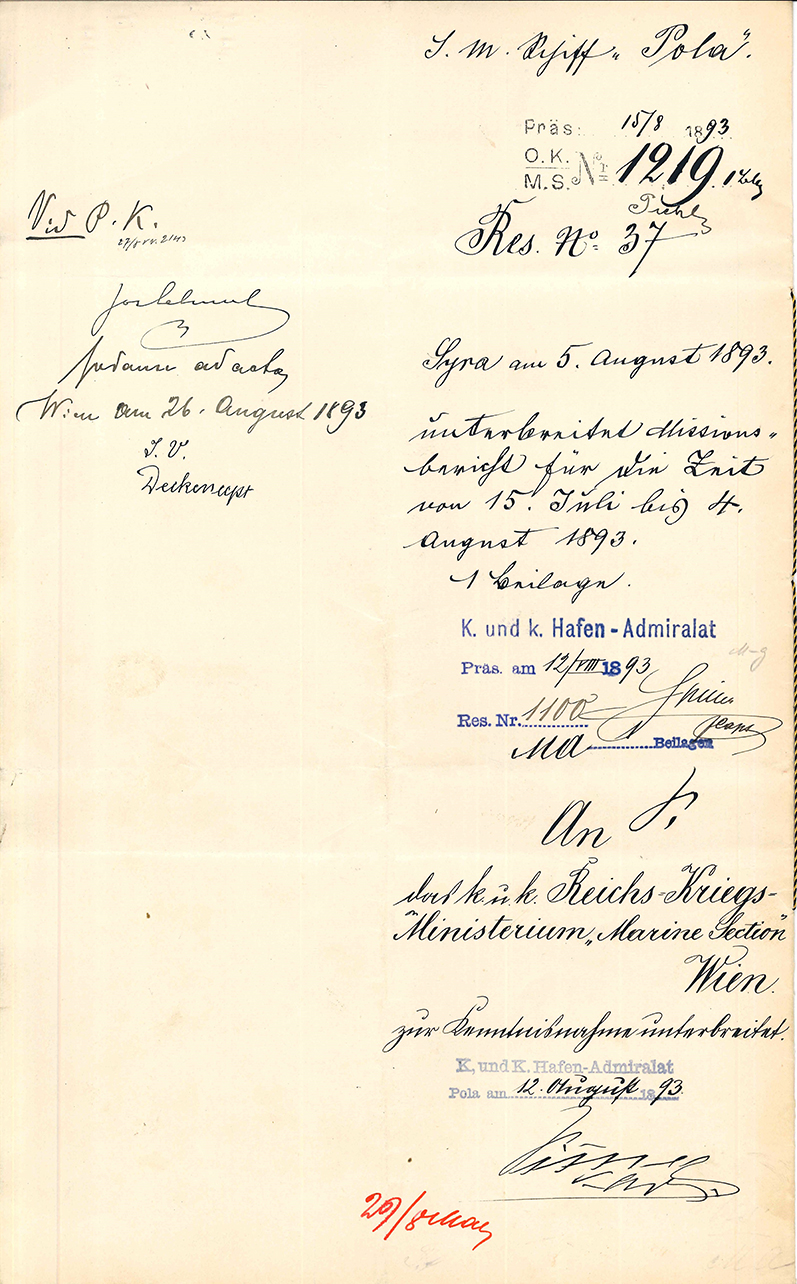 S. M. Schiff „Pola".
Präs: 15/8 1893
O.K.
M.S. № 1219
Res. No 37
Vid P. K.
Syra am 5. August 1893.
sodann ad acta
Wien am 26. August 1893
I. V.
unterbreitet Missions-
bericht für die Zeit
von 15. Juli bis 4.
August 1893.
1 Beilage.
K. und k. Hafen-Admiralat
Präs. am 12/VIII 1893
Res. Nr. 1100
Beilagen
An
das k. u. k. Reichs-Kriegs-
Ministerium „Marine Section"
Wien.
zur Kenntnisnahme unterbreitet.
K. und K. Hafen-Admiralat
Pola am 12. August 1893.
29/8